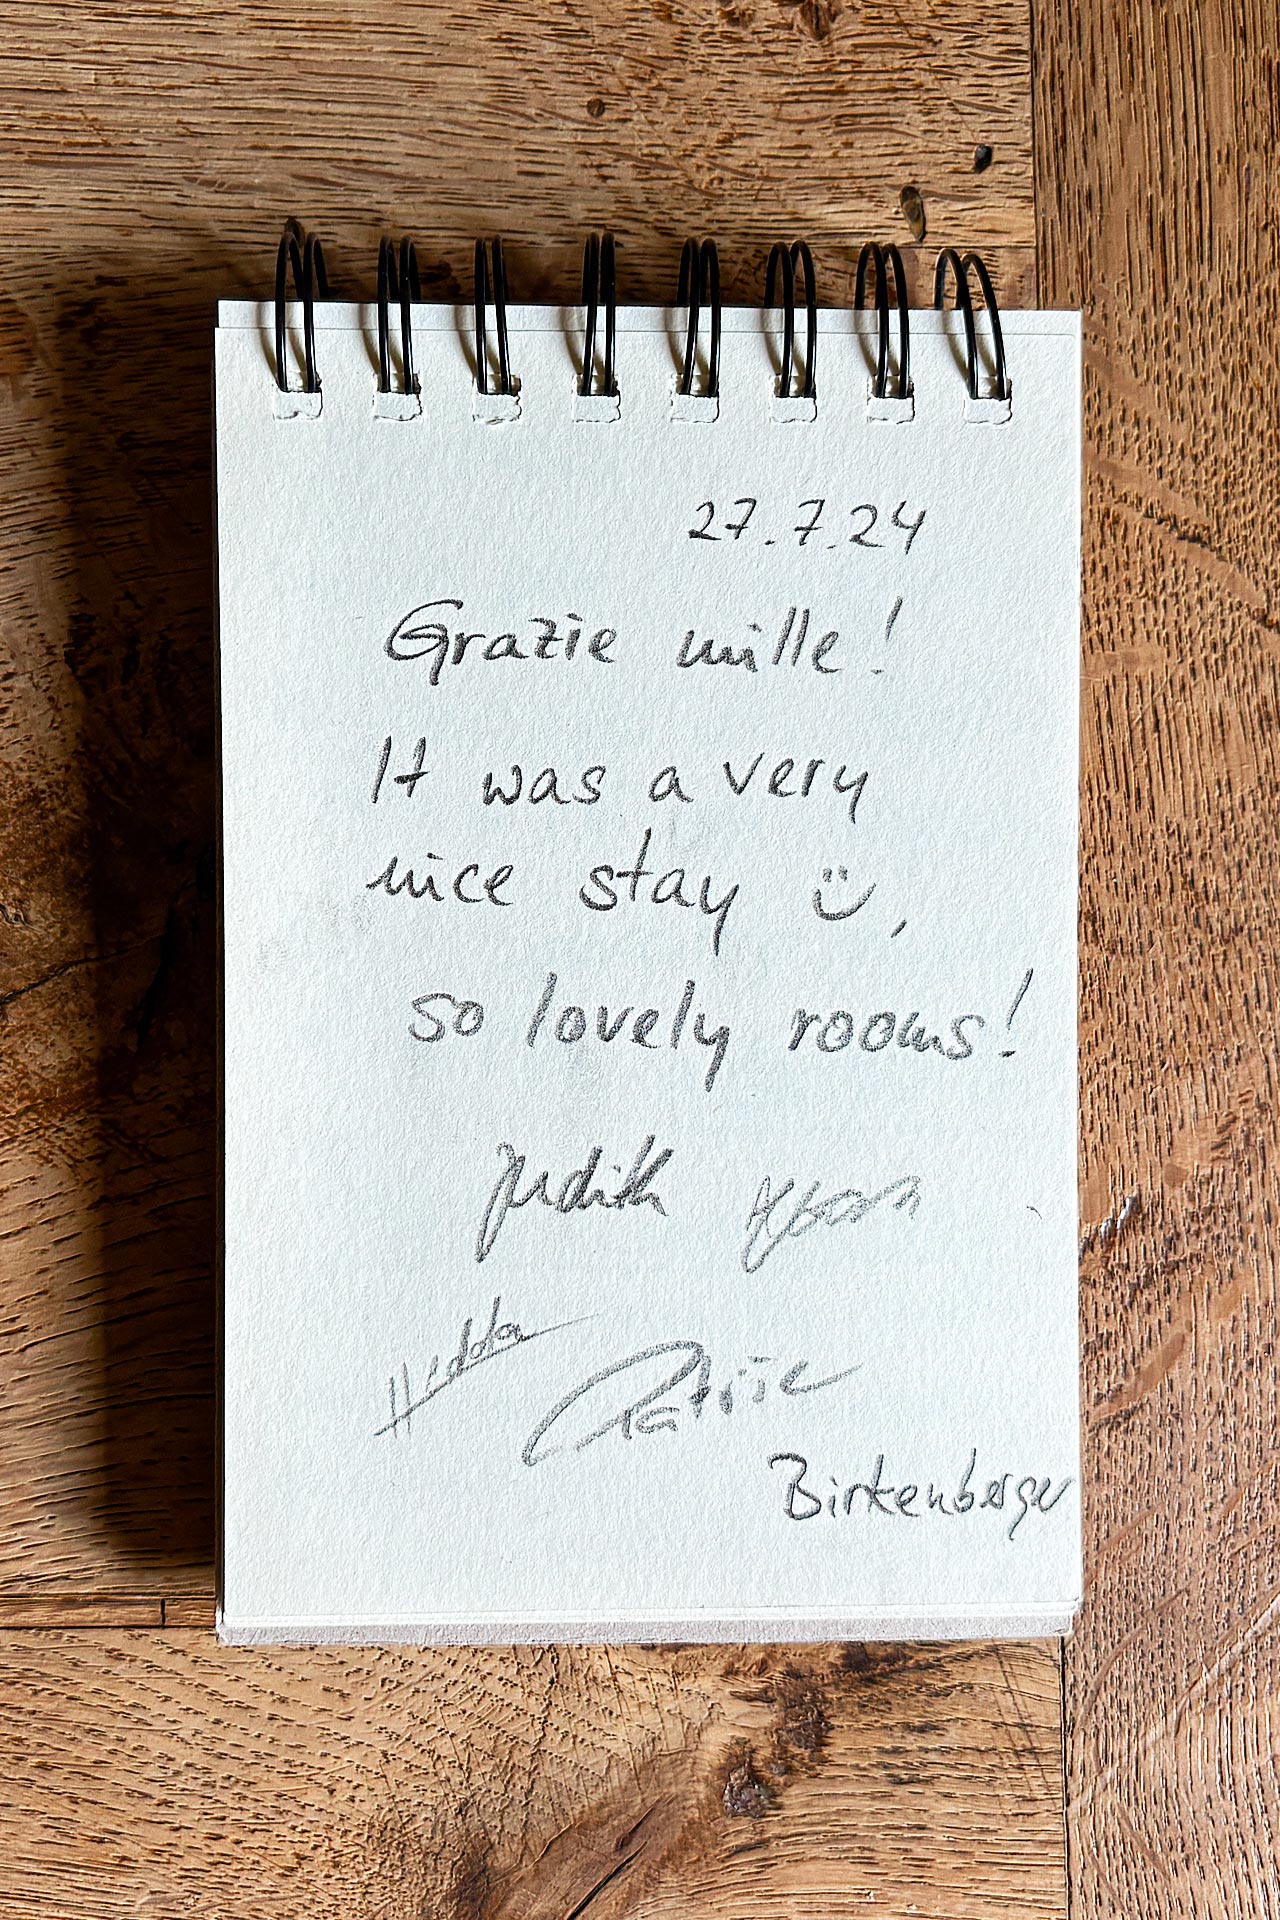 27.7.24
Grazie mille!
It was a very
nice stay ü,
so lovely rooms!
Judith
Hedda
Birkenberger